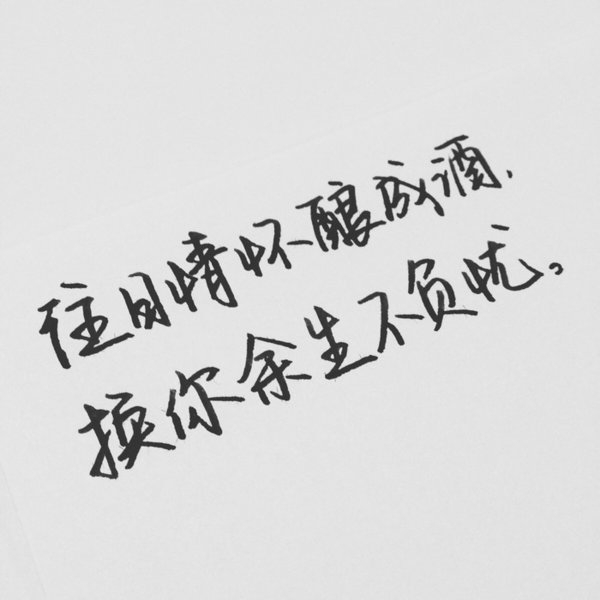 往日情怀酿成酒,
换你余生不负忧。